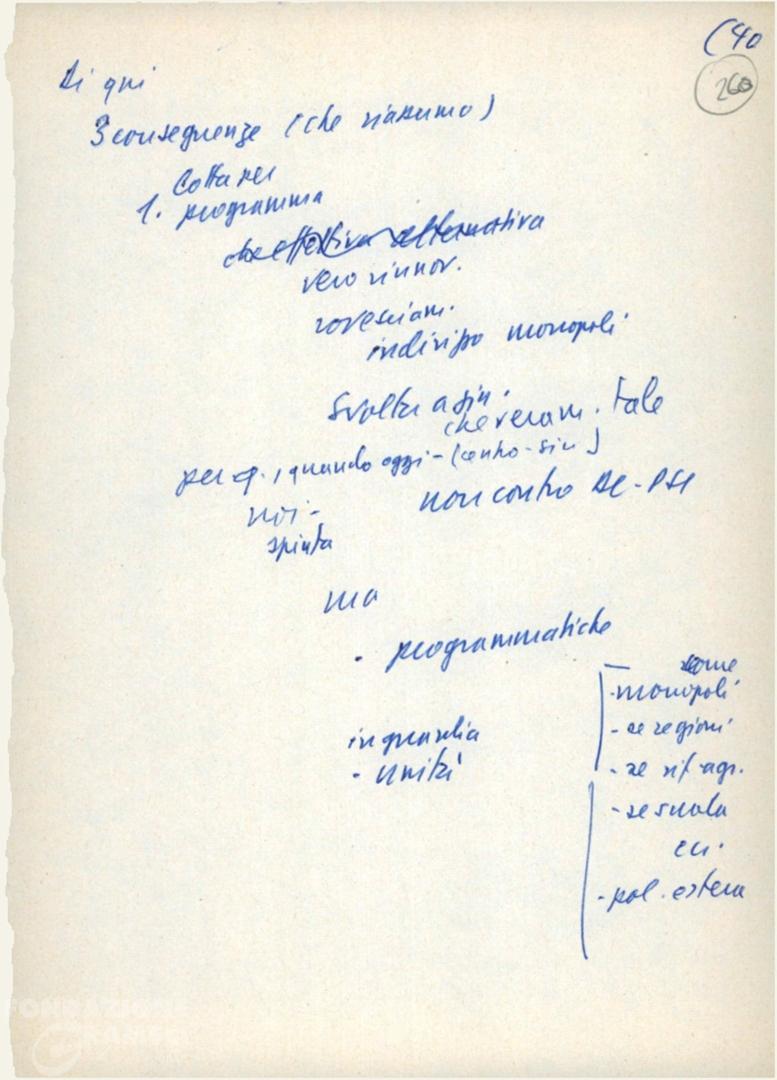 (40
260
Di qui
3 conseguenze (che riassumo)
Lotta per
1. programma
che effettiva alternativa
vero rinnov.
rovesciam.
indirizzo monopoli
Svolta a sin.
che veram. tale
per q., quando oggi - (centro-sin)
noi - non contro DC-PSI
spinta
ma
. programmatiche
come
- monopoli
in guardia - se regioni
. unità - se rif. agr.
- se scuola
ecc.
- pol. estera
FONDAZIONE
GRAMSCI